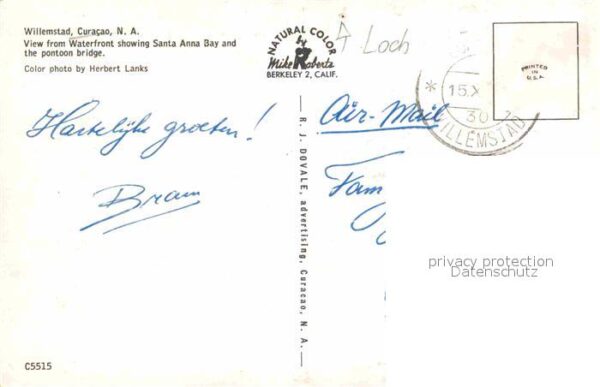 Willemstad, Curaçao, N. A.
View from Waterfront showing Santa Anna Bay and
the pontoon bridge.
Color photo by Herbert Lanks
NATURAL COLOR
by
Mike Roberts
BERKELEY 2, CALIF.
4 Loch
PRINTED
IN
U.S.A.
* 15.X
30
WILLEMSTAD
Hartelijke groeten!
Bram
Air-Mail
Fam
R. J. DOVALE, advertising, Curaçao, N. A.
privacy protection
Datenschutz
C5515